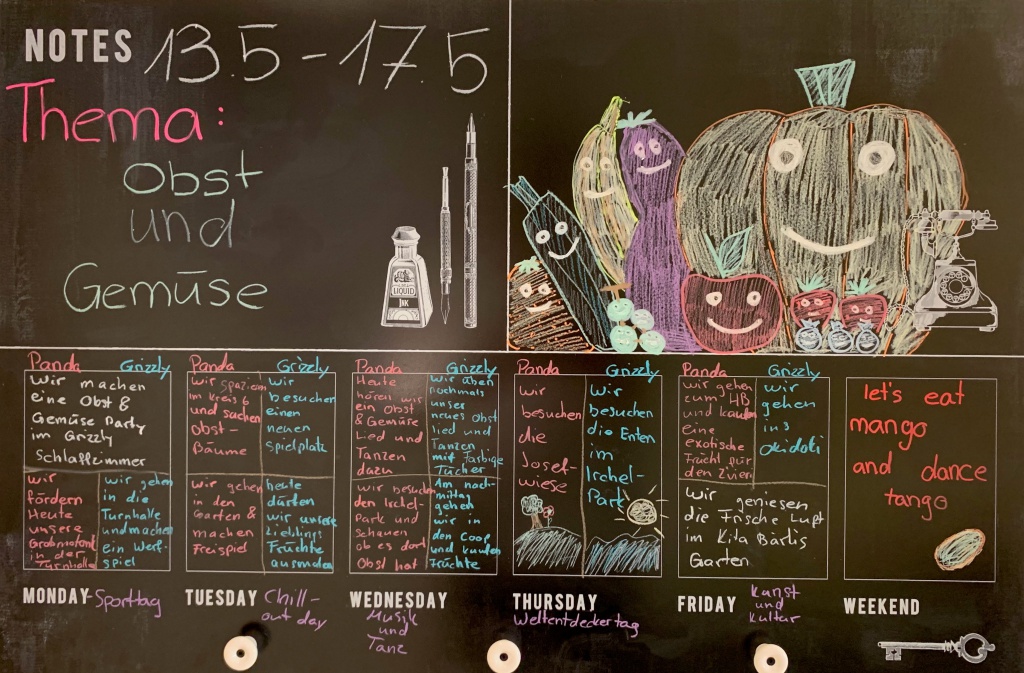 NOTES 13.5 - 17.5
Thema:
Obst
und
Gemüse
LIQUID
INK
Panda Grizzly
Wir machen
eine Obst &
Gemüse Party
im Grizzly
Schlafzimmer
Wir
fördern
Heute
unsere
Grobmotorik
in der
Turnhalle
Wir gehen
in die
Turnhalle
und machen
ein Werf-
spiel
MONDAY - Sporttag
Panda Grizzly
Wir spazieren
im Kreis 6
und suchen
Obst-
Bäume
Wir
besuchen
einen
neuen
Spielplatz
Wir gehen
in den
Garten &
machen
Freispiel
heute
dürfen
wir unsere
Lieblings
Früchte
ausmalen
TUESDAY Chill-
out day
Panda Grizzly
Heute
hören wir
ein Obst
& Gemüse
Lied und
Tanzen
dazu
Wir üben
nochmals
unser
neues Obst
lied und
Tanzen
mit farbige
Tücher
Wir besuchen
den Irchel-
Park und
schauen
ob es dort
Obst hat
Am nach-
mittag
gehen
wir in
den Coop
und kaufen
Früchte
WEDNESDAY
Musik
und
Tanz
Panda Grizzly
Wir
besuchen
die
Josef-
wiese
Wir
besuchen
die Enten
im
Irchel-
Park
THURSDAY
Weltentdeckertag
Panda Grizzly
Wir gehen
zum HB
und kaufen
eine
exotische
Frucht für
den Zvieri
Wir
gehen
ins
Wir geniesen
die Frische Luft
im Kita Bärlis
Garten
FRIDAY Kunst
und
Kultur
let's eat
mango
and dance
tango
WEEKEND